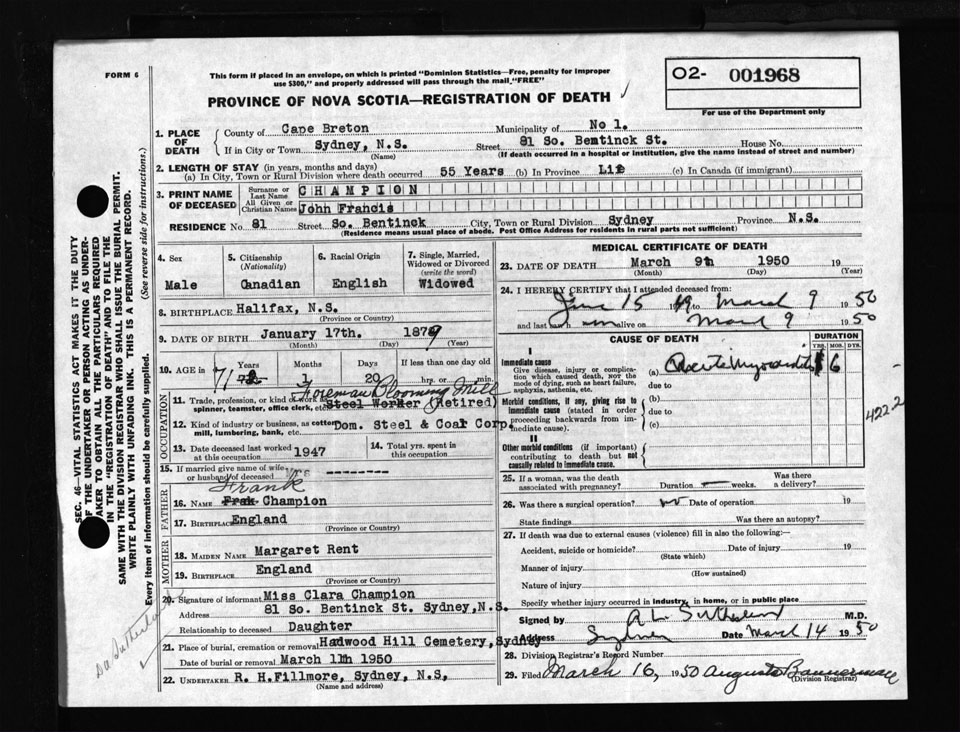 FORM 6
This form if placed in an envelope, on which is printed "Dominion Statistics—Free, penalty for improper
use $300," and properly addressed will pass through the mail "FREE"
PROVINCE OF NOVA SCOTIA—REGISTRATION OF DEATH
O2- 001968
For use of the Department only
SEC. 46—VITAL STATISTICS ACT MAKES IT THE DUTY
OF THE UNDERTAKER OR PERSON ACTING AS UNDER-
TAKER TO OBTAIN ALL THE PARTICULARS REQUIRED
IN THE "REGISTRATION OF DEATH" AND TO FILE THE
SAME WITH THE DIVISION REGISTRAR WHO SHALL ISSUE THE BURIAL PERMIT.
WRITE PLAINLY WITH UNFADING INK. THIS IS A PERMANENT RECORD.
Every item of information should be carefully supplied. (See reverse side for instructions.)
1. PLACE OF DEATH
County of Cape Breton Municipality of No 1.
If in City or Town Sydney, N.S. Street 81 So. Bemtinck St. House No.
(Name) (If death occurred in a hospital or institution, give the name instead of street and number)
2. LENGTH OF STAY (in years, months and days)
(a) In City, Town or Rural Division where death occurred 55 Years (b) In Province Life (c) In Canada (if immigrant)
3. PRINT NAME OF DECEASED
Surname or Last Name CHAMPION
All Given or Christian Names John Francis
RESIDENCE No. 81 Street So. Bentinck City, Town or Rural Division Sydney Province N.S.
(Residence means usual place of abode. Post Office Address for residents in rural parts not sufficient)
4. Sex Male
5. Citizenship (Nationality) Canadian
6. Racial Origin English
7. Single, Married, Widowed or Divorced (write the word) Widowed
8. BIRTHPLACE Halifax, N.S.
(Province or Country)
9. DATE OF BIRTH January 17th. 1879
(Month) (Day) (Year)
10. AGE in Years 71 Months 1 Days 20 If less than one day old hrs. or min.
OCCUPATION
Foreman Blooming Mill
11. Trade, profession, or kind of work as spinner, teamster, office clerk, etc. Steel Worker (Retired)
12. Kind of industry or business, as cotton mill, lumbering, bank, etc. Dom. Steel & Coal Corp.
13. Date deceased last worked at this occupation 1947
14. Total yrs. spent in this occupation
15. If married give name of wife or husband of deceased
FATHER
Frank
16. NAME Champion
17. BIRTHPLACE England
(Province or Country)
MOTHER
18. MAIDEN NAME Margaret Rent
19. BIRTHPLACE England
(Province or Country)
20. Signature of informant Miss Clara Champion
Address 81 So. Bentinck St. Sydney, N.S.
Relationship to deceased Daughter
21. Place of burial, cremation or removal Hadwood Hill Cemetery, Sydney
Date of burial or removal March 11th 1950
22. UNDERTAKER R. H. Fillmore, Sydney, N.S,
(Name and address)
MEDICAL CERTIFICATE OF DEATH
23. DATE OF DEATH March 9th 1950 19
(Month) (Day) (Year)
24. I HEREBY CERTIFY that I attended deceased from:
June 15 1949 to March 9 1950
and last saw h alive on March 9 1950
CAUSE OF DEATH
DURATION
YRS. MOS. DYS.
I
Immediate cause
Give disease, injury or complication which caused death, not the mode of dying, such as heart failure, asphyxia, asthenia, etc.
(a) 6
due to
Morbid conditions, if any, giving rise to immediate cause (stated in order proceeding backwards from immediate cause).
(b)
due to
(c)
4222
II
Other morbid conditions (if important) contributing to death but not causally related to immediate cause.
25. If a woman, was the death associated with pregnancy? Duration weeks. Was there a delivery?
26. Was there a surgical operation? no Date of operation 19
State findings Was there an autopsy?
27. If death was due to external causes (violence) fill in also the following:—
Accident, suicide or homicide? Date of injury 19
(State which)
Manner of injury
(How sustained)
Nature of injury
Specify whether injury occurred in industry, in home, or in public place
Signed by Sutherland M.D.
Address Sydney Date March 14 1950
28. Division Registrar's Record Number
29. Filed March 16, 1950 Augusta Bannerman
(Division Registrar)
Dr Sutherland